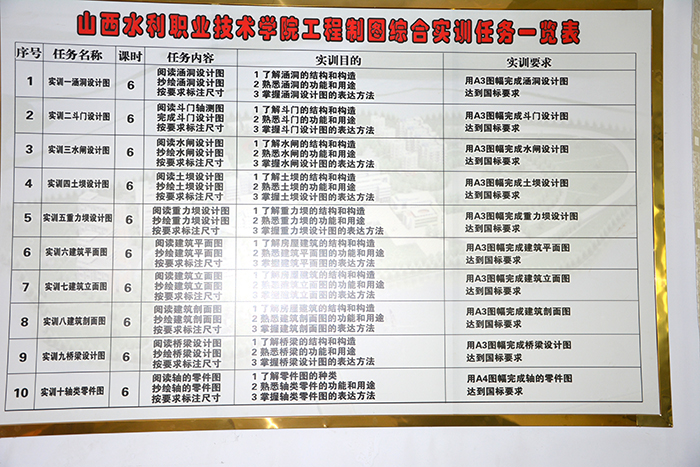 山西水利职业技术学院工程制图综合实训任务一览表
序号 任务名称 课时 任务内容 实训目的 实训要求
1 实训一涵洞设计图 6
阅读涵洞设计图
抄绘涵洞设计图
按要求标注尺寸
1 了解涵洞的结构和构造
2 熟悉涵洞的功能和用途
3 掌握涵洞设计图的表达方法
用A3图幅完成涵洞设计图
达到国标要求
2 实训二斗门设计图 6
阅读斗门轴测图
完成斗门设计图
按要求标注尺寸
1 了解斗门的结构和构造
2 熟悉斗门的功能和用途
3 掌握斗门设计图的表达方法
用A3图幅完成斗门设计图
达到国标要求
3 实训三水闸设计图 6
阅读水闸设计图
抄绘水闸设计图
按要求标注尺寸
1 了解水闸的结构和构造
2 熟悉水闸的功能和用途
3 掌握水闸设计图的表达方法
用A3图幅完成水闸设计图
达到国标要求
4 实训四土坝设计图 6
阅读土坝设计图
抄绘土坝设计图
按要求标注尺寸
1 了解土坝的结构和构造
2 熟悉土坝的功能和用途
3 掌握土坝设计图的表达方法
用A3图幅完成土坝设计图
达到国标要求
5 实训五重力坝设计图 6
阅读重力坝设计图
抄绘重力坝设计图
按要求标注尺寸
1 了解重力坝的结构和构造
2 熟悉重力坝的功能和用途
3 掌握重力坝设计图的表达方法
用A3图幅完成重力坝设计图
达到国标要求
6 实训六建筑平面图 6
阅读建筑平面图
抄绘建筑平面图
按要求标注尺寸
1 了解房屋建筑的结构和构造
2 熟悉建筑平面图的功能和用途
3 掌握建筑平面图的表达方法
用A3图幅完成建筑平面图
达到国标要求
7 实训七建筑立面图 6
阅读建筑立面图
抄绘建筑立面图
按要求标注尺寸
1 了解房屋建筑的结构和构造
2 熟悉建筑立面图的功能和用途
3 掌握建筑立面图的表达方法
用A3图幅完成建筑立面图
达到国标要求
8 实训八建筑剖面图 6
阅读建筑剖面图
抄绘建筑剖面图
按要求标注尺寸
1 了解房屋建筑的结构和构造
2 熟悉建筑剖面图的功能和用途
3 掌握建筑剖面图的表达方法
用A3图幅完成建筑剖面图
达到国标要求
9 实训九桥梁设计图 6
阅读桥梁设计图
抄绘桥梁设计图
按要求标注尺寸
1 了解桥梁的结构和构造
2 熟悉桥梁的功能和用途
3 掌握桥梁设计图的表达方法
用A3图幅完成桥梁设计图
达到国标要求
10 实训十轴类零件图 6
阅读轴的零件图
抄绘轴的零件图
按要求标注尺寸
1 了解零件图的种类
2 熟悉轴类零件的功能和用途
3 掌握轴类零件图的表达方法
用A4图幅完成轴的零件图
达到国标要求